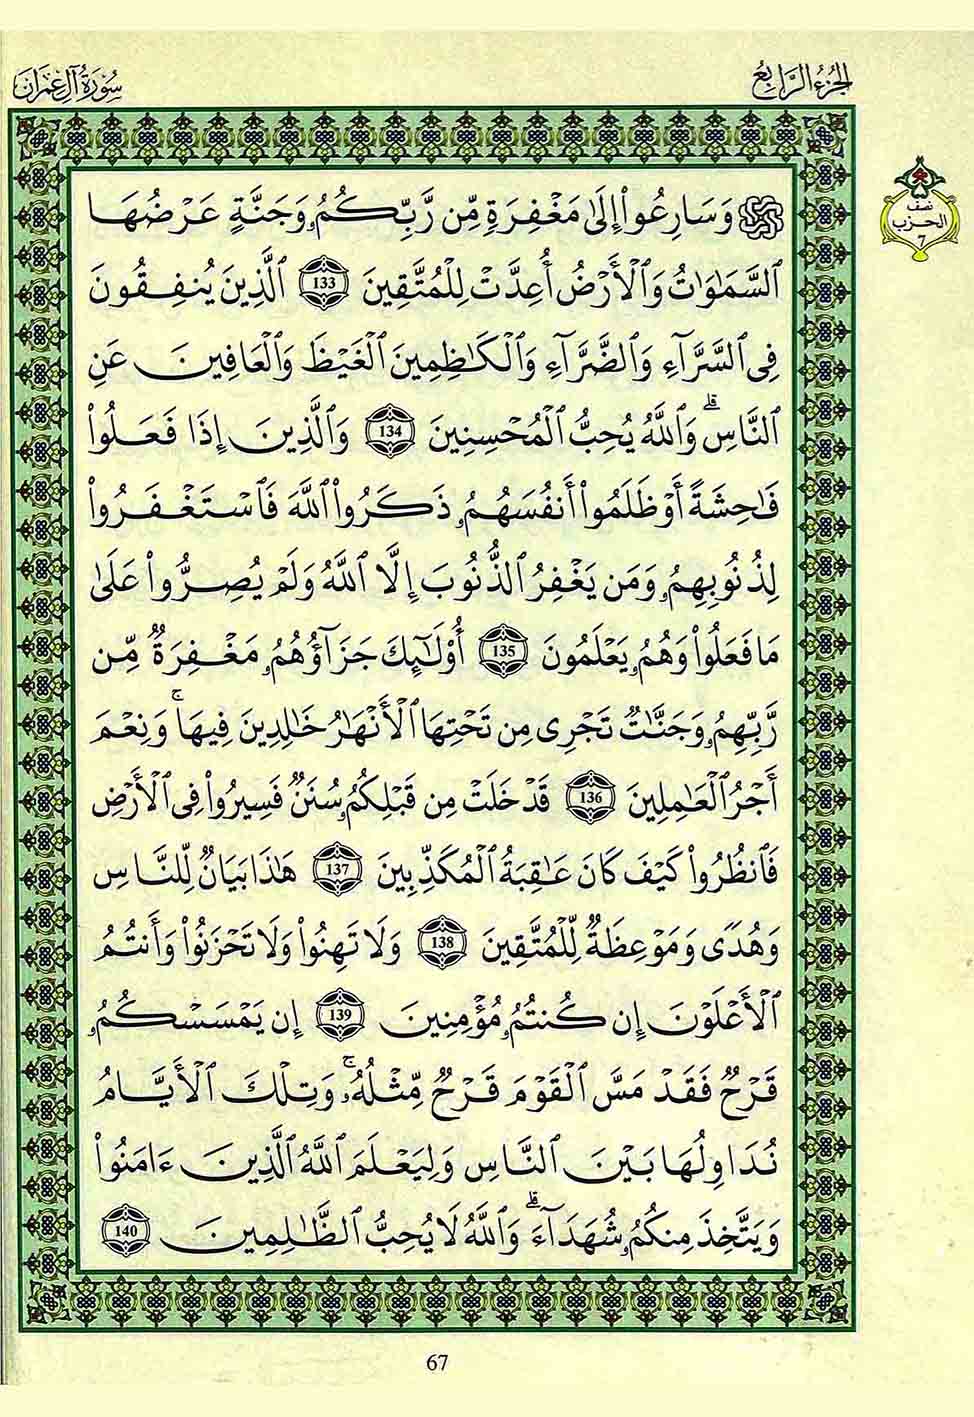 الجزء الرابع
سورة آل عمران
نصف
الحزب
7
۞ وَسَارِعُوا۟ إِلَىٰ مَغْفِرَةٍ مِّن رَّبِّكُمُۥ وَجَنَّةٍ عَرْضُهَا
ٱلسَّمَٰوَٰتُ وَٱلْأَرْضُ أُعِدَّتْ لِلْمُتَّقِينَ 133 ٱلَّذِينَ يُنفِقُونَ
فِى ٱلسَّرَّآءِ وَٱلضَّرَّآءِ وَٱلْكَٰظِمِينَ ٱلْغَيْظَ وَٱلْعَافِينَ عَنِ
ٱلنَّاسِ ۗ وَٱللَّهُ يُحِبُّ ٱلْمُحْسِنِينَ 134 وَٱلَّذِينَ إِذَا فَعَلُوا۟
فَٰحِشَةً أَوْ ظَلَمُوٓا۟ أَنفُسَهُمُۥ ذَكَرُوا۟ ٱللَّهَ فَٱسْتَغْفَرُوا۟
لِذُنُوبِهِمُۥ وَمَن يَغْفِرُ ٱلذُّنُوبَ إِلَّا ٱللَّهُ وَلَمْ يُصِرُّوا۟ عَلَىٰ
مَا فَعَلُوا۟ وَهُمُۥ يَعْلَمُونَ 135 أُو۟لَٰٓئِكَ جَزَآؤُهُمُۥ مَغْفِرَةٌ مِّن
رَّبِّهِمُۥ وَجَنَّٰتٌ تَجْرِى مِن تَحْتِهَا ٱلْأَنْهَٰرُ خَٰلِدِينَ فِيهَا ۚ وَنِعْمَ
أَجْرُ ٱلْعَٰمِلِينَ 136 قَدْ خَلَتْ مِن قَبْلِكُمُۥ سُنَنٌ فَسِيرُوا۟ فِى ٱلْأَرْضِ
فَٱنظُرُوا۟ كَيْفَ كَانَ عَٰقِبَةُ ٱلْمُكَذِّبِينَ 137 هَٰذَا بَيَانٌ لِّلنَّاسِ
وَهُدًى وَمَوْعِظَةٌ لِّلْمُتَّقِينَ 138 وَلَا تَهِنُوا۟ وَلَا تَحْزَنُوا۟ وَأَنتُمُ
ٱلْأَعْلَوْنَ إِن كُنتُمُۥ مُؤْمِنِينَ 139 إِن يَمْسَسْكُمُۥ
قَرْحٌ فَقَدْ مَسَّ ٱلْقَوْمَ قَرْحٌ مِّثْلُهُۥ ۚ وَتِلْكَ ٱلْأَيَّامُ
نُدَاوِلُهَا بَيْنَ ٱلنَّاسِ وَلِيَعْلَمَ ٱللَّهُ ٱلَّذِينَ ءَامَنُوا۟
وَيَتَّخِذَ مِنكُمُۥ شُهَدَآءَ ۗ وَٱللَّهُ لَا يُحِبُّ ٱلظَّٰلِمِينَ 140
67